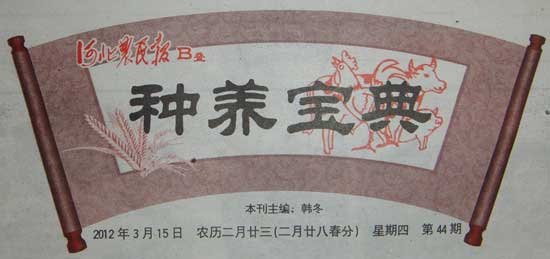 河北农民报 B叠
种养宝典
本刊主编：韩冬
2012年3月15日 农历二月廿三(二月廿八春分) 星期四 第44期